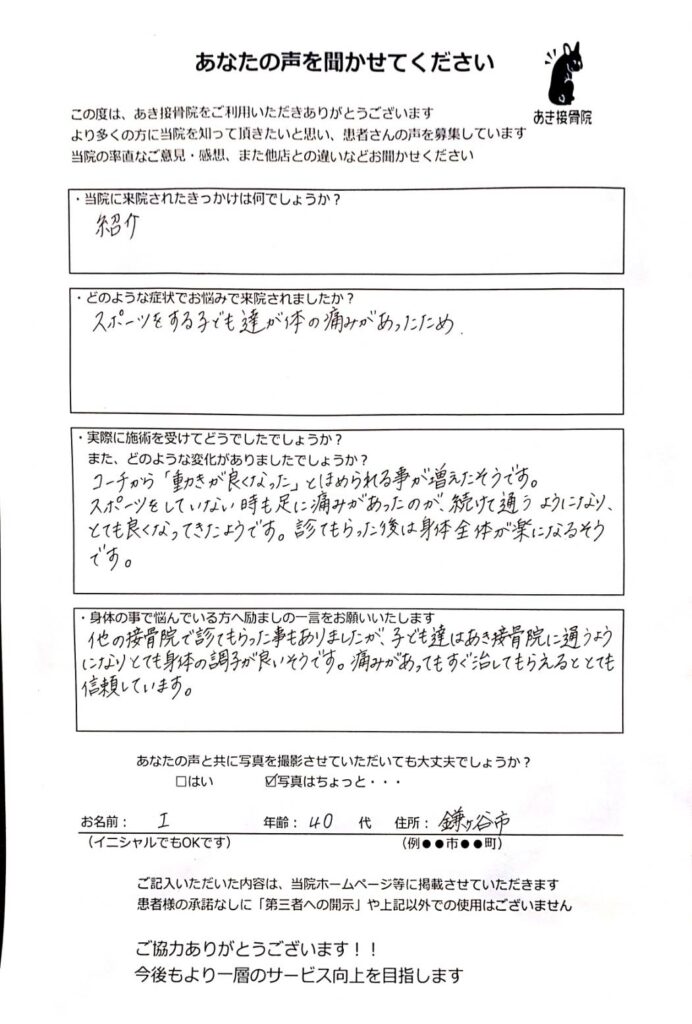 あなたの声を聞かせてください
あき接骨院
この度は、あき接骨院をご利用いただきありがとうございます
より多くの方に当院を知って頂きたいと思い、患者さんの声を募集しています
当院の率直なご意見・感想、また他店との違いなどお聞かせください
・当院に来院されたきっかけは何でしょうか？
紹介
・どのような症状でお悩みで来院されましたか？
スポーツをする子ども達が体の痛みがあったため.
・実際に施術を受けてどうでしたでしょうか？
また、どのような変化がありましたでしょうか？
コーチから「動きが良くなった」とほめられる事が増えたそうです。
スポーツをしていない時も足に痛みがあったのが、続けて通うようになり、
とても良くなってきたようです。診てもらった後は身体全体が楽になるそう
です。
・身体の事で悩んでいる方へ励ましの一言をお願いいたします
他の接骨院で診てもらった事もありましたが、子ども達はあき接骨院に通うよう
になりとても身体の調子が良いそうです。痛みがあってもすぐ治してもらえるととても
信頼しています。
あなたの声と共に写真を撮影させていただいても大丈夫でしょうか？
□はい ☑写真はちょっと・・・
お名前： I 年齢： 40 代 住所： 鎌ヶ谷市
（イニシャルでもOKです） （例●●市●●町）
ご記入いただいた内容は、当院ホームページ等に掲載させていただきます
患者様の承諾なしに「第三者への開示」や上記以外での使用はございません
ご協力ありがとうございます！！
今後もより一層のサービス向上を目指します